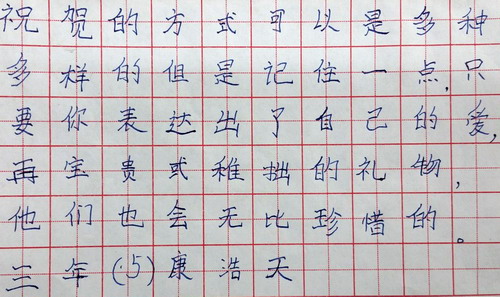 祝贺的方式可以是多种
多样的但是记住一点,只
要你表达出了自己的爱,
再宝贵或稚拙的礼物,
他们也会无比珍惜的。
三年(·5)康浩天